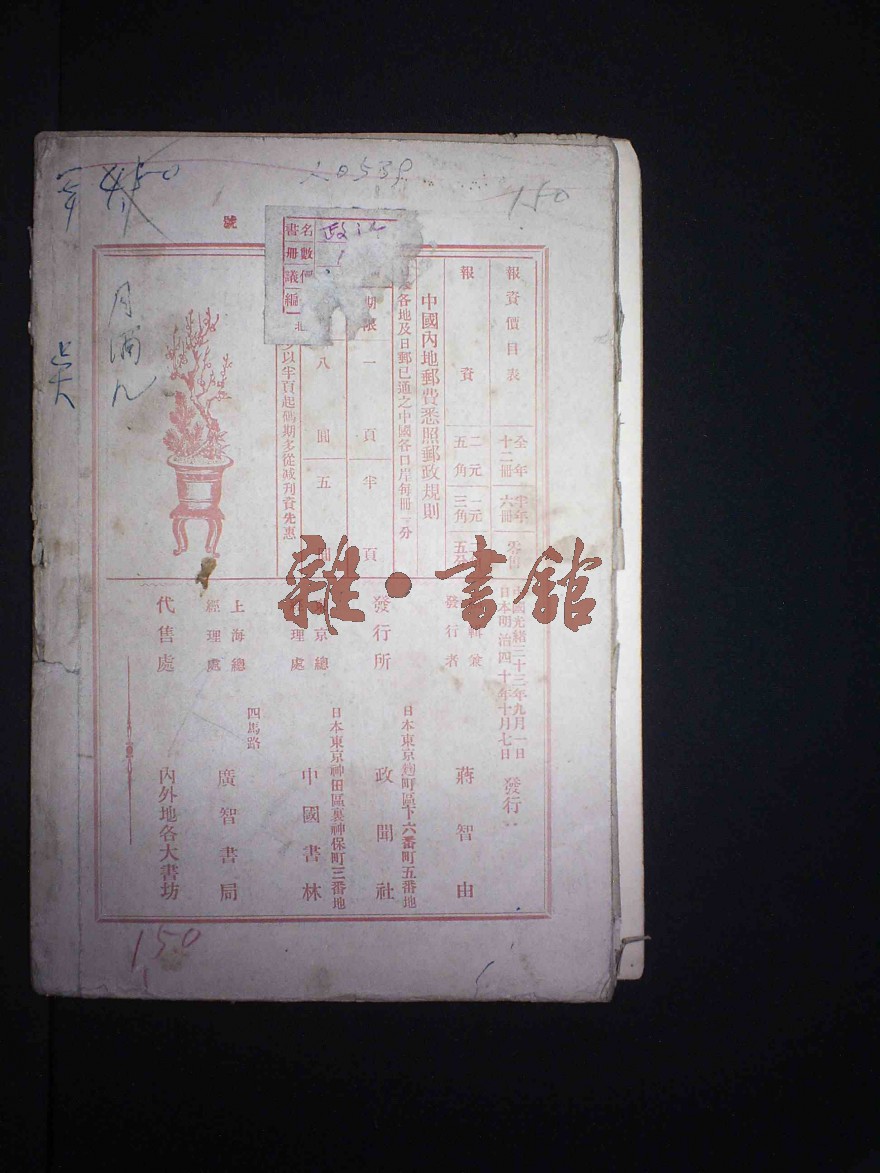 150
150
號
書名 政
冊數 1
議價
編
報資價目表
全年十二冊
半年六冊
報資
二元五角
一元三角
中國內地郵費悉照郵政規則
各地及日郵已通之中國各口岸每冊三分
期限
一頁
半頁
八圓
五圓
少以半頁起碼期多從減刊資先惠
中國光緒三十三年九月一日
日本明治四十年十月七日
發行
輯兼
發行者
蔣智由
發行所
日本東京麴町區下六番町五番地
政聞社
京總
理處
日本東京神田區裏神保町三番地
中國書林
上海總
經理處
四馬路
廣智書局
代售處
內外地各大書坊
雜·書館
150